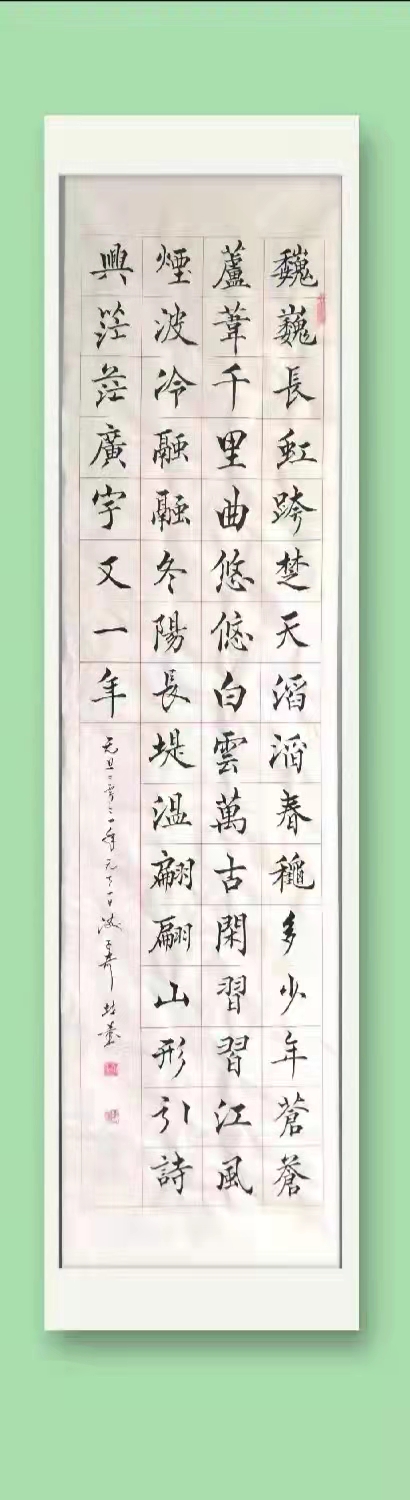 巍巍長虹跨楚天滔滔春穐多少年蒼蒼
蘆葦千里曲悠悠白雲萬古閑習習江風
煙波冷融融冬陽長堤溫翩翩山形引詩
興茫茫廣宇又一年
元旦二零二一年元月一日